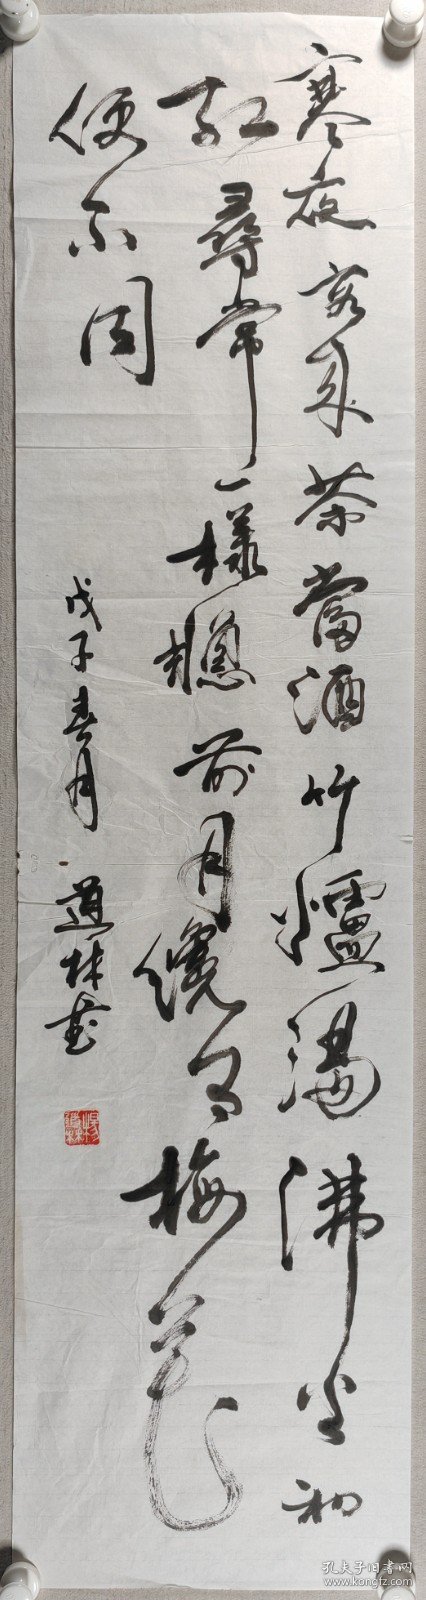 寒夜客来茶當酒竹爐湯沸火初
紅尋常一樣牕前月纔有梅花
便不同
戊子春月 林書
孔夫子旧书网
www.kongfz.com